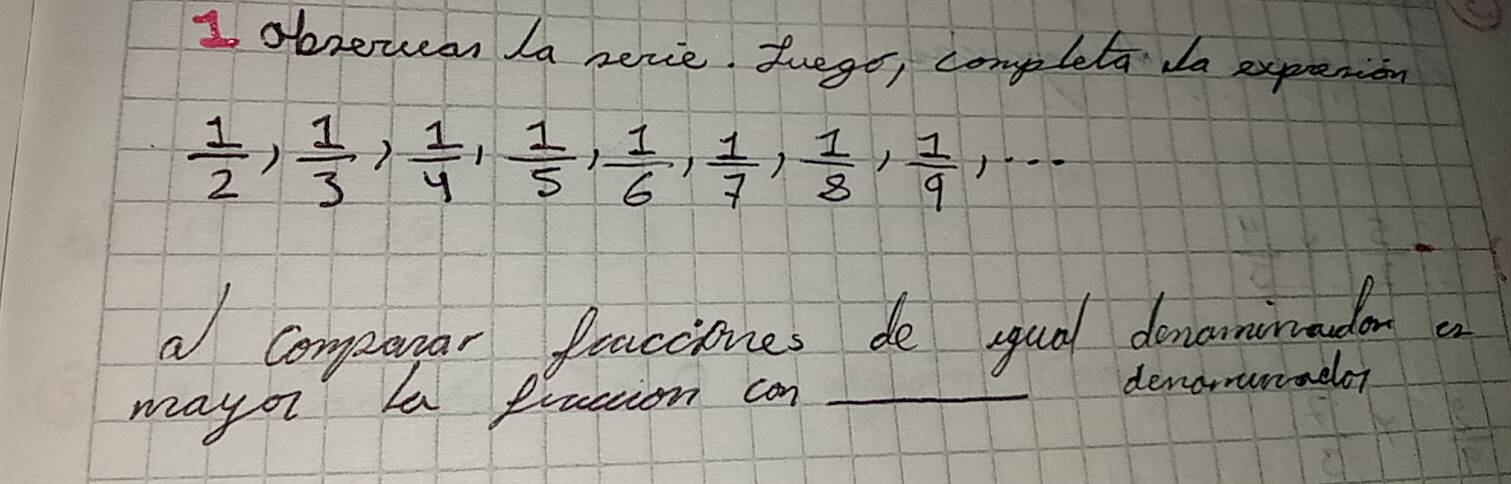 1. Observean la serie. Luego, completa la expresión
1/2, 1/3, 1/4, 1/5, 1/6, 1/7, 1/8, 1/9, ...
a) Comparar fracciones de igual denominador es
mayor la fracción con ________ denominador